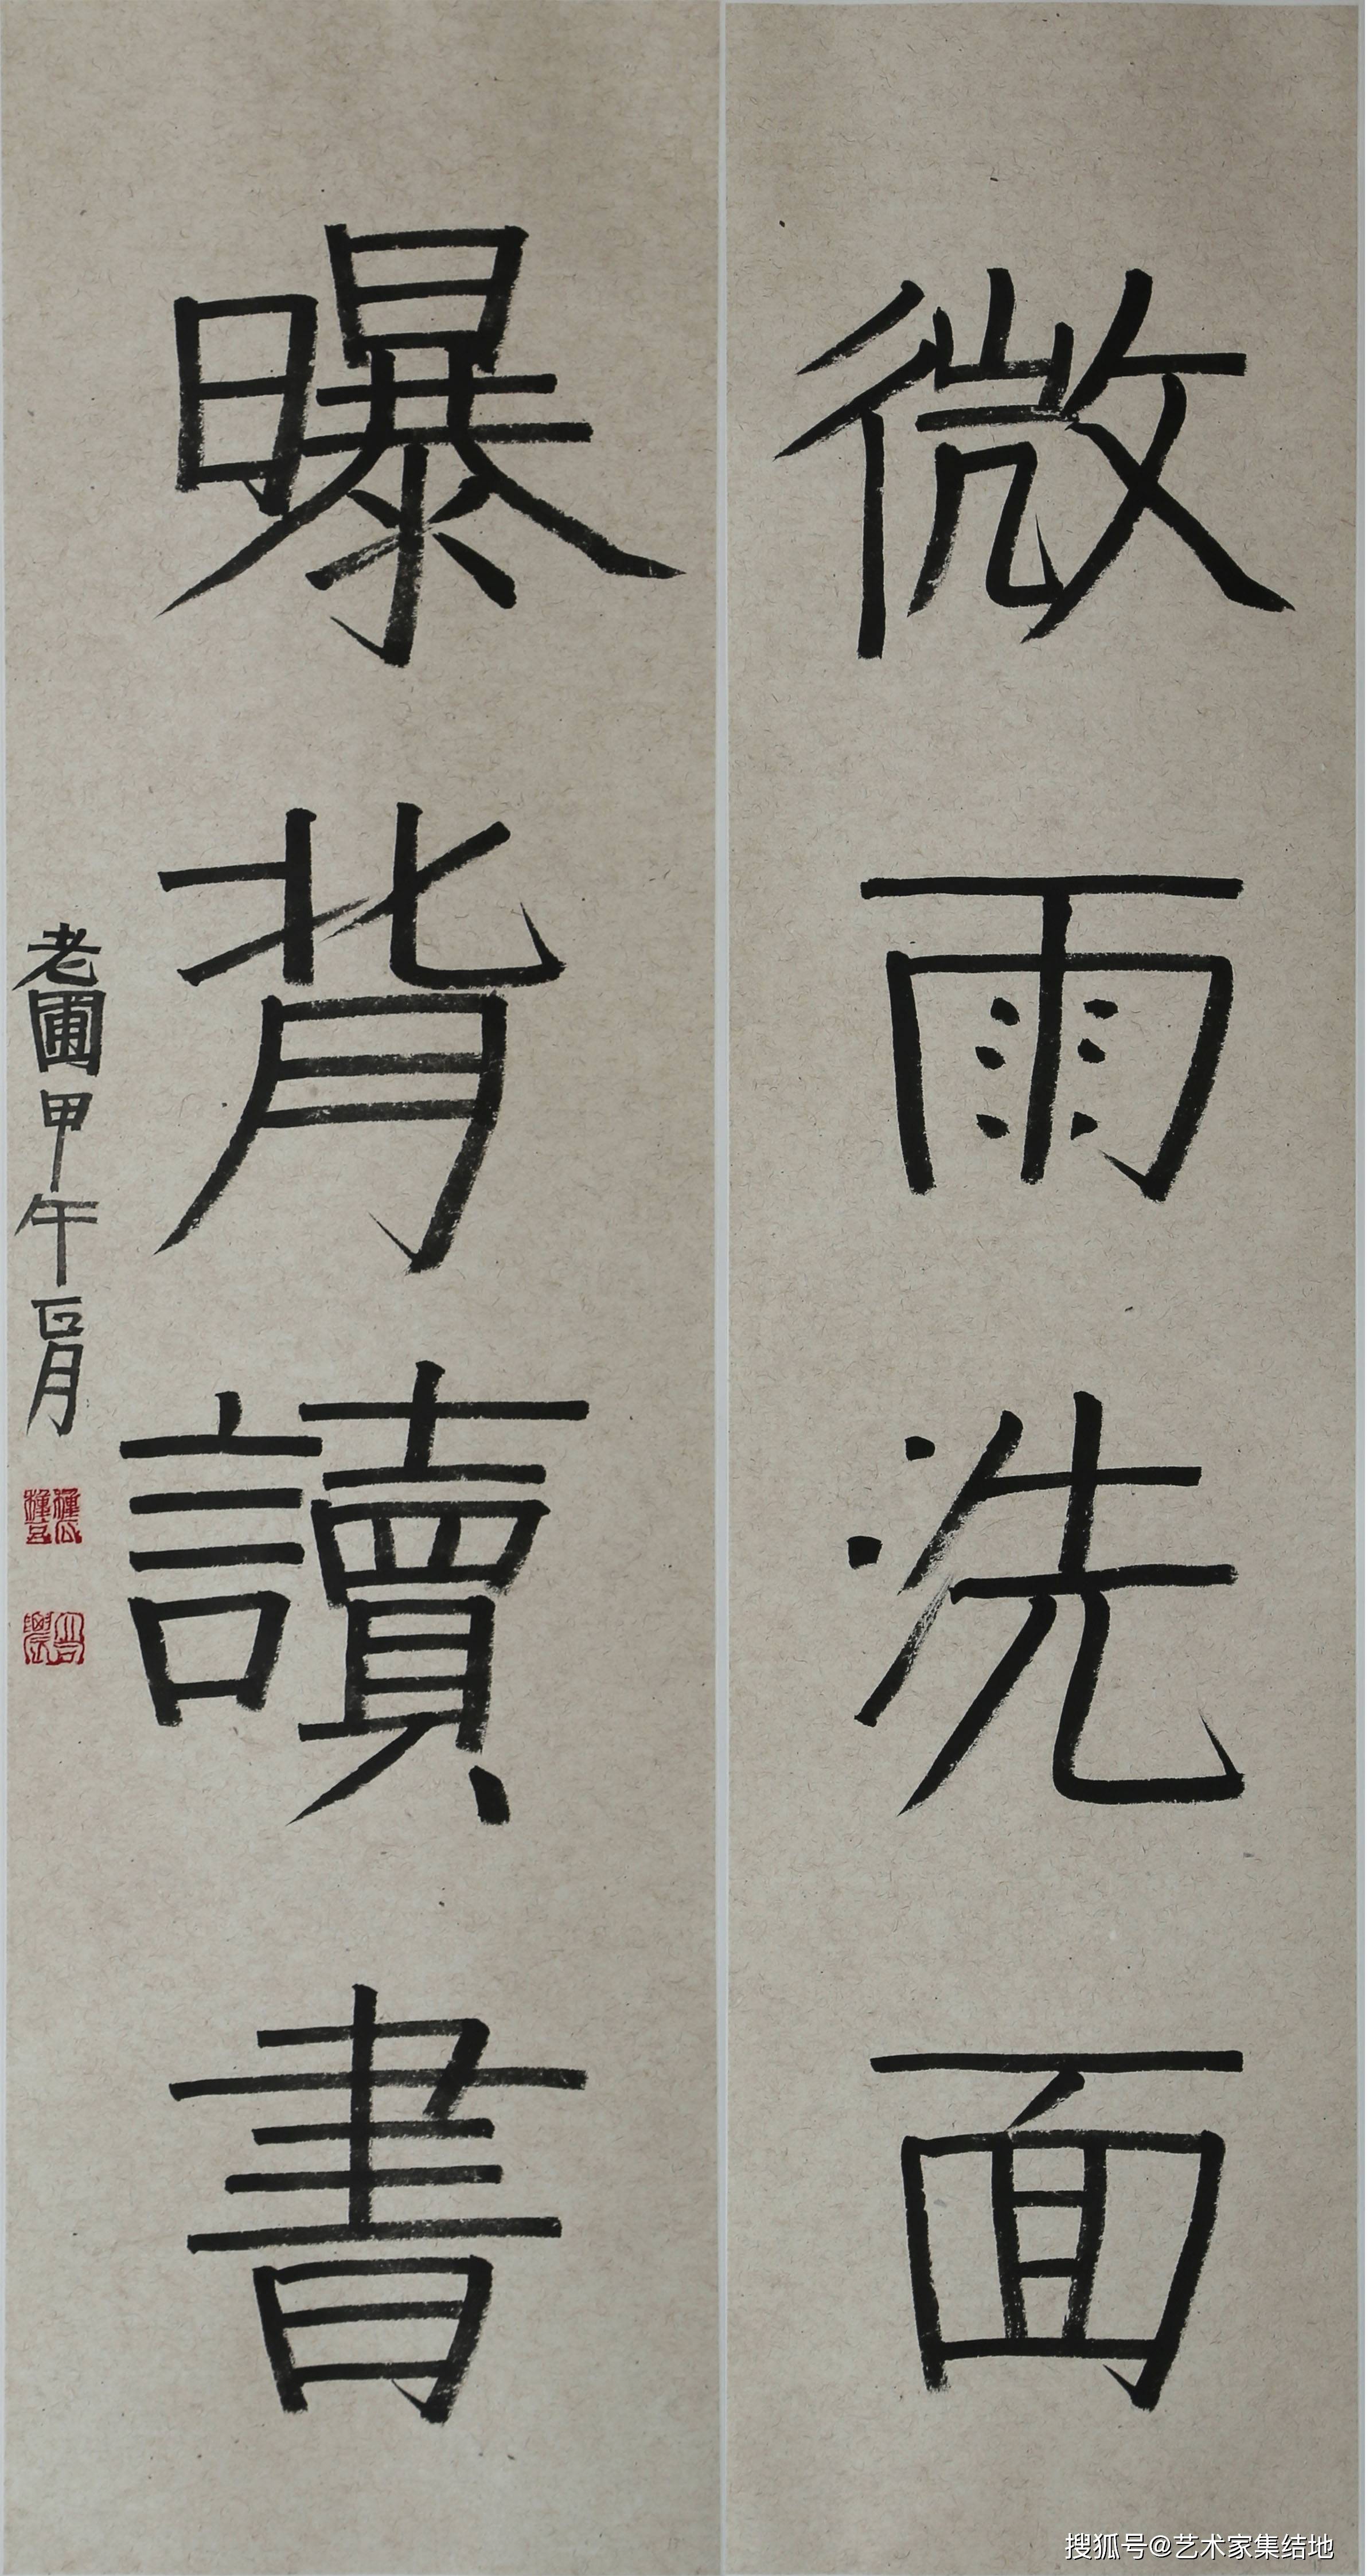 微雨洗面
曝背讀書
老圃甲午正月
搜狐号@艺术家集结地